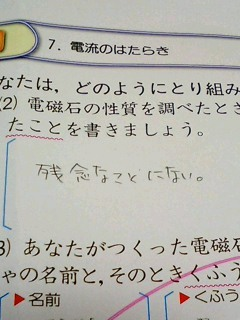 7. 電流のはたらき
なたは，どのようにとり組み
(2) 電磁石の性質を調べたとき
たことを書きましょう。
残念なことにない。
3) あなたがつくった電磁石
ゃの名前と，そのときくふう
▶名前
▶くふう